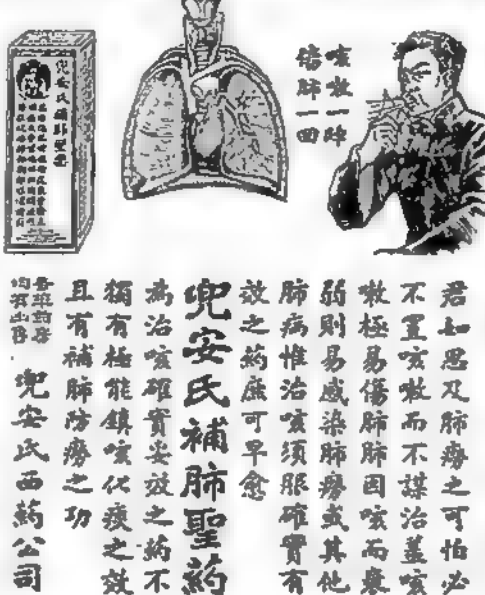 咳敖一聲
傷肺一回
兜安氏補肺聖藥
君如思及肺癆之可怕必
不置咳嗽而不謀治蓋咳
嗽極易傷肺肺因咳而衰
弱則易感染肺癆或其他
肺病惟治咳須服確實有
效之藥庶可早愈
兜安氏補肺聖藥
為治咳確實妥效之藥不
獨有極能鎮咳化痰之效
且有補肺防癆之功
兜安氏西藥公司